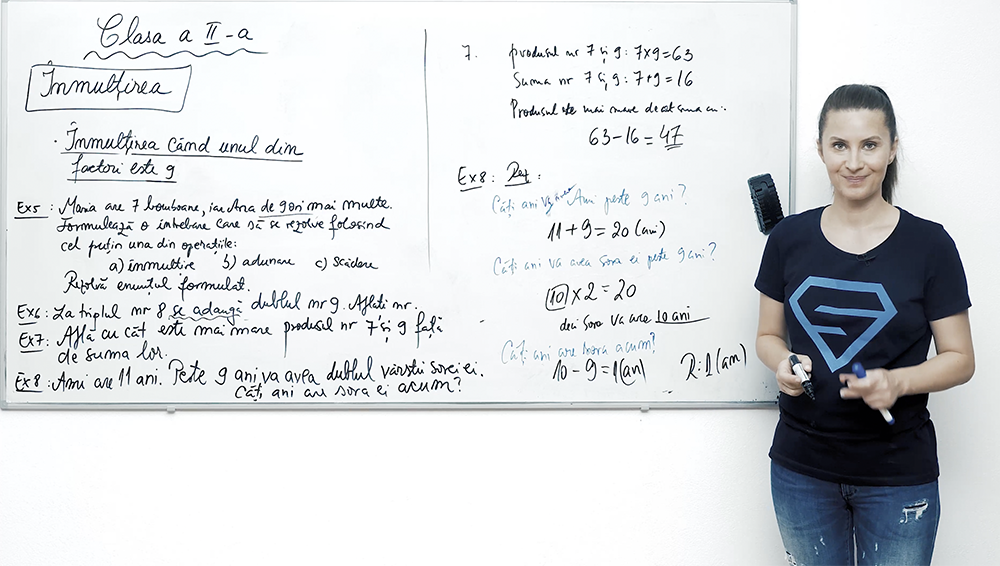 Clasa a II-a
Înmulțirea
· Înmulțirea când unul din
factori este 9
Ex5: Maria are 7 bomboane, iar Ana de 9 ori mai multe.
Formulează o întrebare care să se rezolve folosind
cel puțin una din operațiile:
a) înmulțire b) adunare c) scădere
Rezolvă enunțul formulat.
Ex6: La triplul nr 8 se adaugă dublul nr 9. Aflați nr.
Ex7: Află cu cât este mai mare produsul nr 7 și 9 față
de suma lor.
Ex8: Ami are 11 ani. Peste 9 ani va avea dublul vârstei surei ei.
Câți ani are sora ei acum?
7. produsul nr 7 și 9: 7x9=63
Suma nr 7 și 9: 7+9=16
Produsul este mai mare decât suma cu:
63-16=47
Ex8: Rez:
Câți ani va avea Ami peste 9 ani?
11+9=20 (ani)
Câți ani va avea sora ei peste 9 ani?
10 x 2 = 20
deci sora va avea 10 ani
Câți ani are sora acum?
10-9=1(an) R: 1 (an)